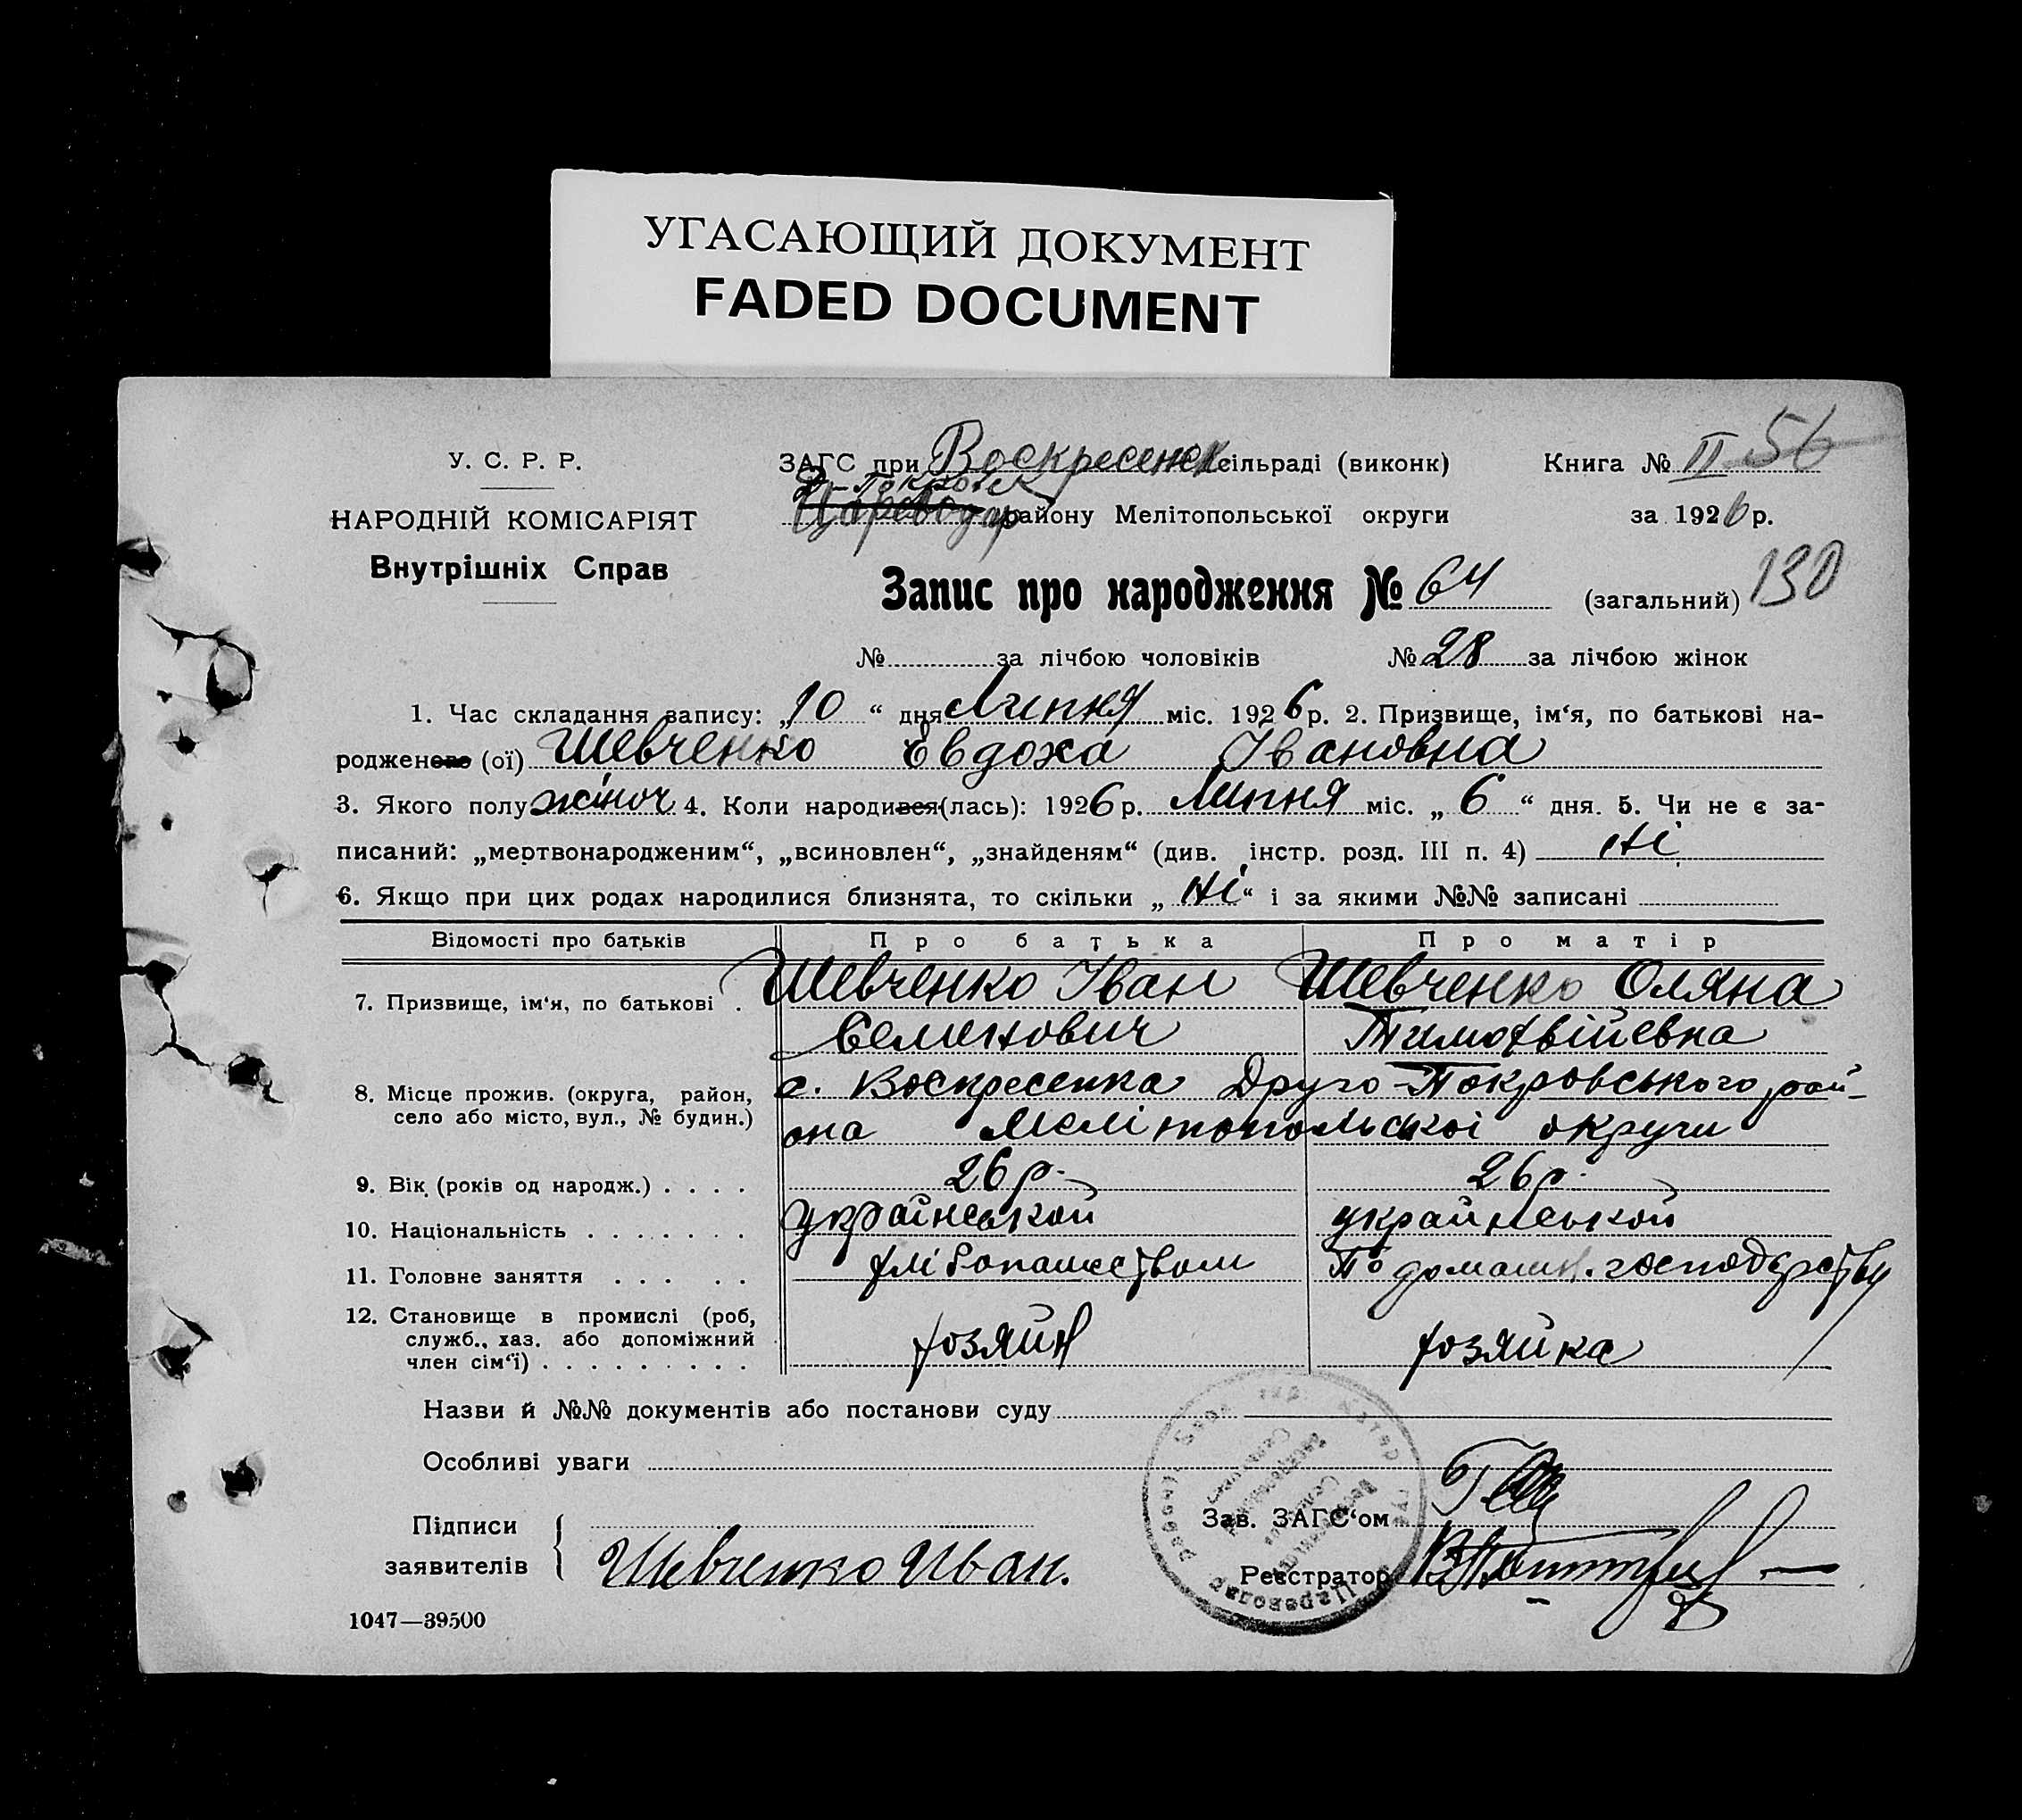 УГАСАЮЩИЙ ДОКУМЕНТ
FADED DOCUMENT
У. С. Р. Р.
НАРОДНІЙ КОМІСАРІЯТ
Внутрішніх Справ
ЗАГС при Воскресенск сільраді (виконк)
2-Покровск
Цареводар району Мелітопольської округи
Книга № II 56
за 1926 р.
Запис про народження № 64 (загальний) 130
№ за лічбою чоловіків № 28 за лічбою жінок
1. Час складання запису: „10“ дня Липня міс. 1926 р. 2. Призвище, ім‘я, по батькові на-
родженого (ої) Шевченко Евдоха Івановна
3. Якого полу жіноч 4. Коли народився (лась): 1926 р. Липня міс. „6“ дня. 5. Чи не є за-
писаний: „мертвонародженим“, „всиновлен“, „знайденям“ (див. інстр. розд. III п. 4) Ні
6. Якщо при цих родах народилися близнята, то скільки „Ні“ і за якими №№ записані
Відомості про батьків Про батька Про матір
7. Призвище, ім‘я, по батькові . Шевченко Іван Шевченко Оляна
Семенович Тимофвійевна
8. Місце прожив. (округа, район, с. Воскресенка Друго-Покровського рай-
село або місто, вул., № будин.) она Мелітопольської округи
9. Вік (років од народж.) . . . . 26 р. 26 р.
10. Національність . . . . . . . української української
11. Головне заняття . . . . . хлібопашеством По домашн. господарству
12. Становище в промислі (роб,
служб., хаз. або допоміжний хозяин хозяйка
член сім‘ї) . . . . . . . . .
Назви й №№ документів або постанови суду
Особливі уваги
Підписи
заявителів Шевченко Иван.
Зав. ЗАГС‘ом
Реєстратор
1047—39500